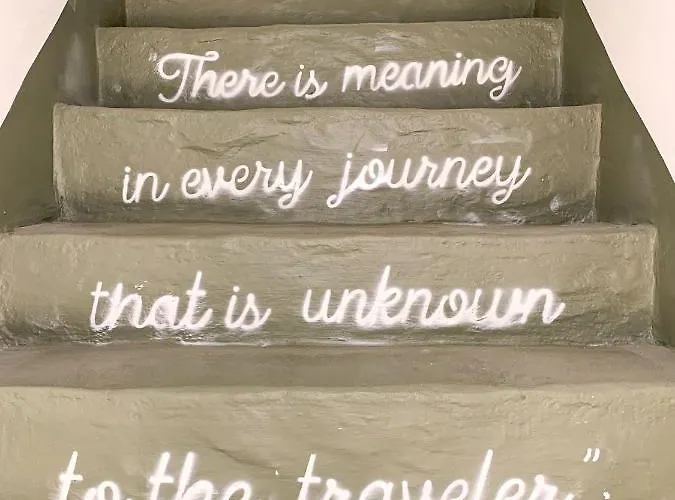 "There is meaning
in every journey
that is unknown
to the traveler".